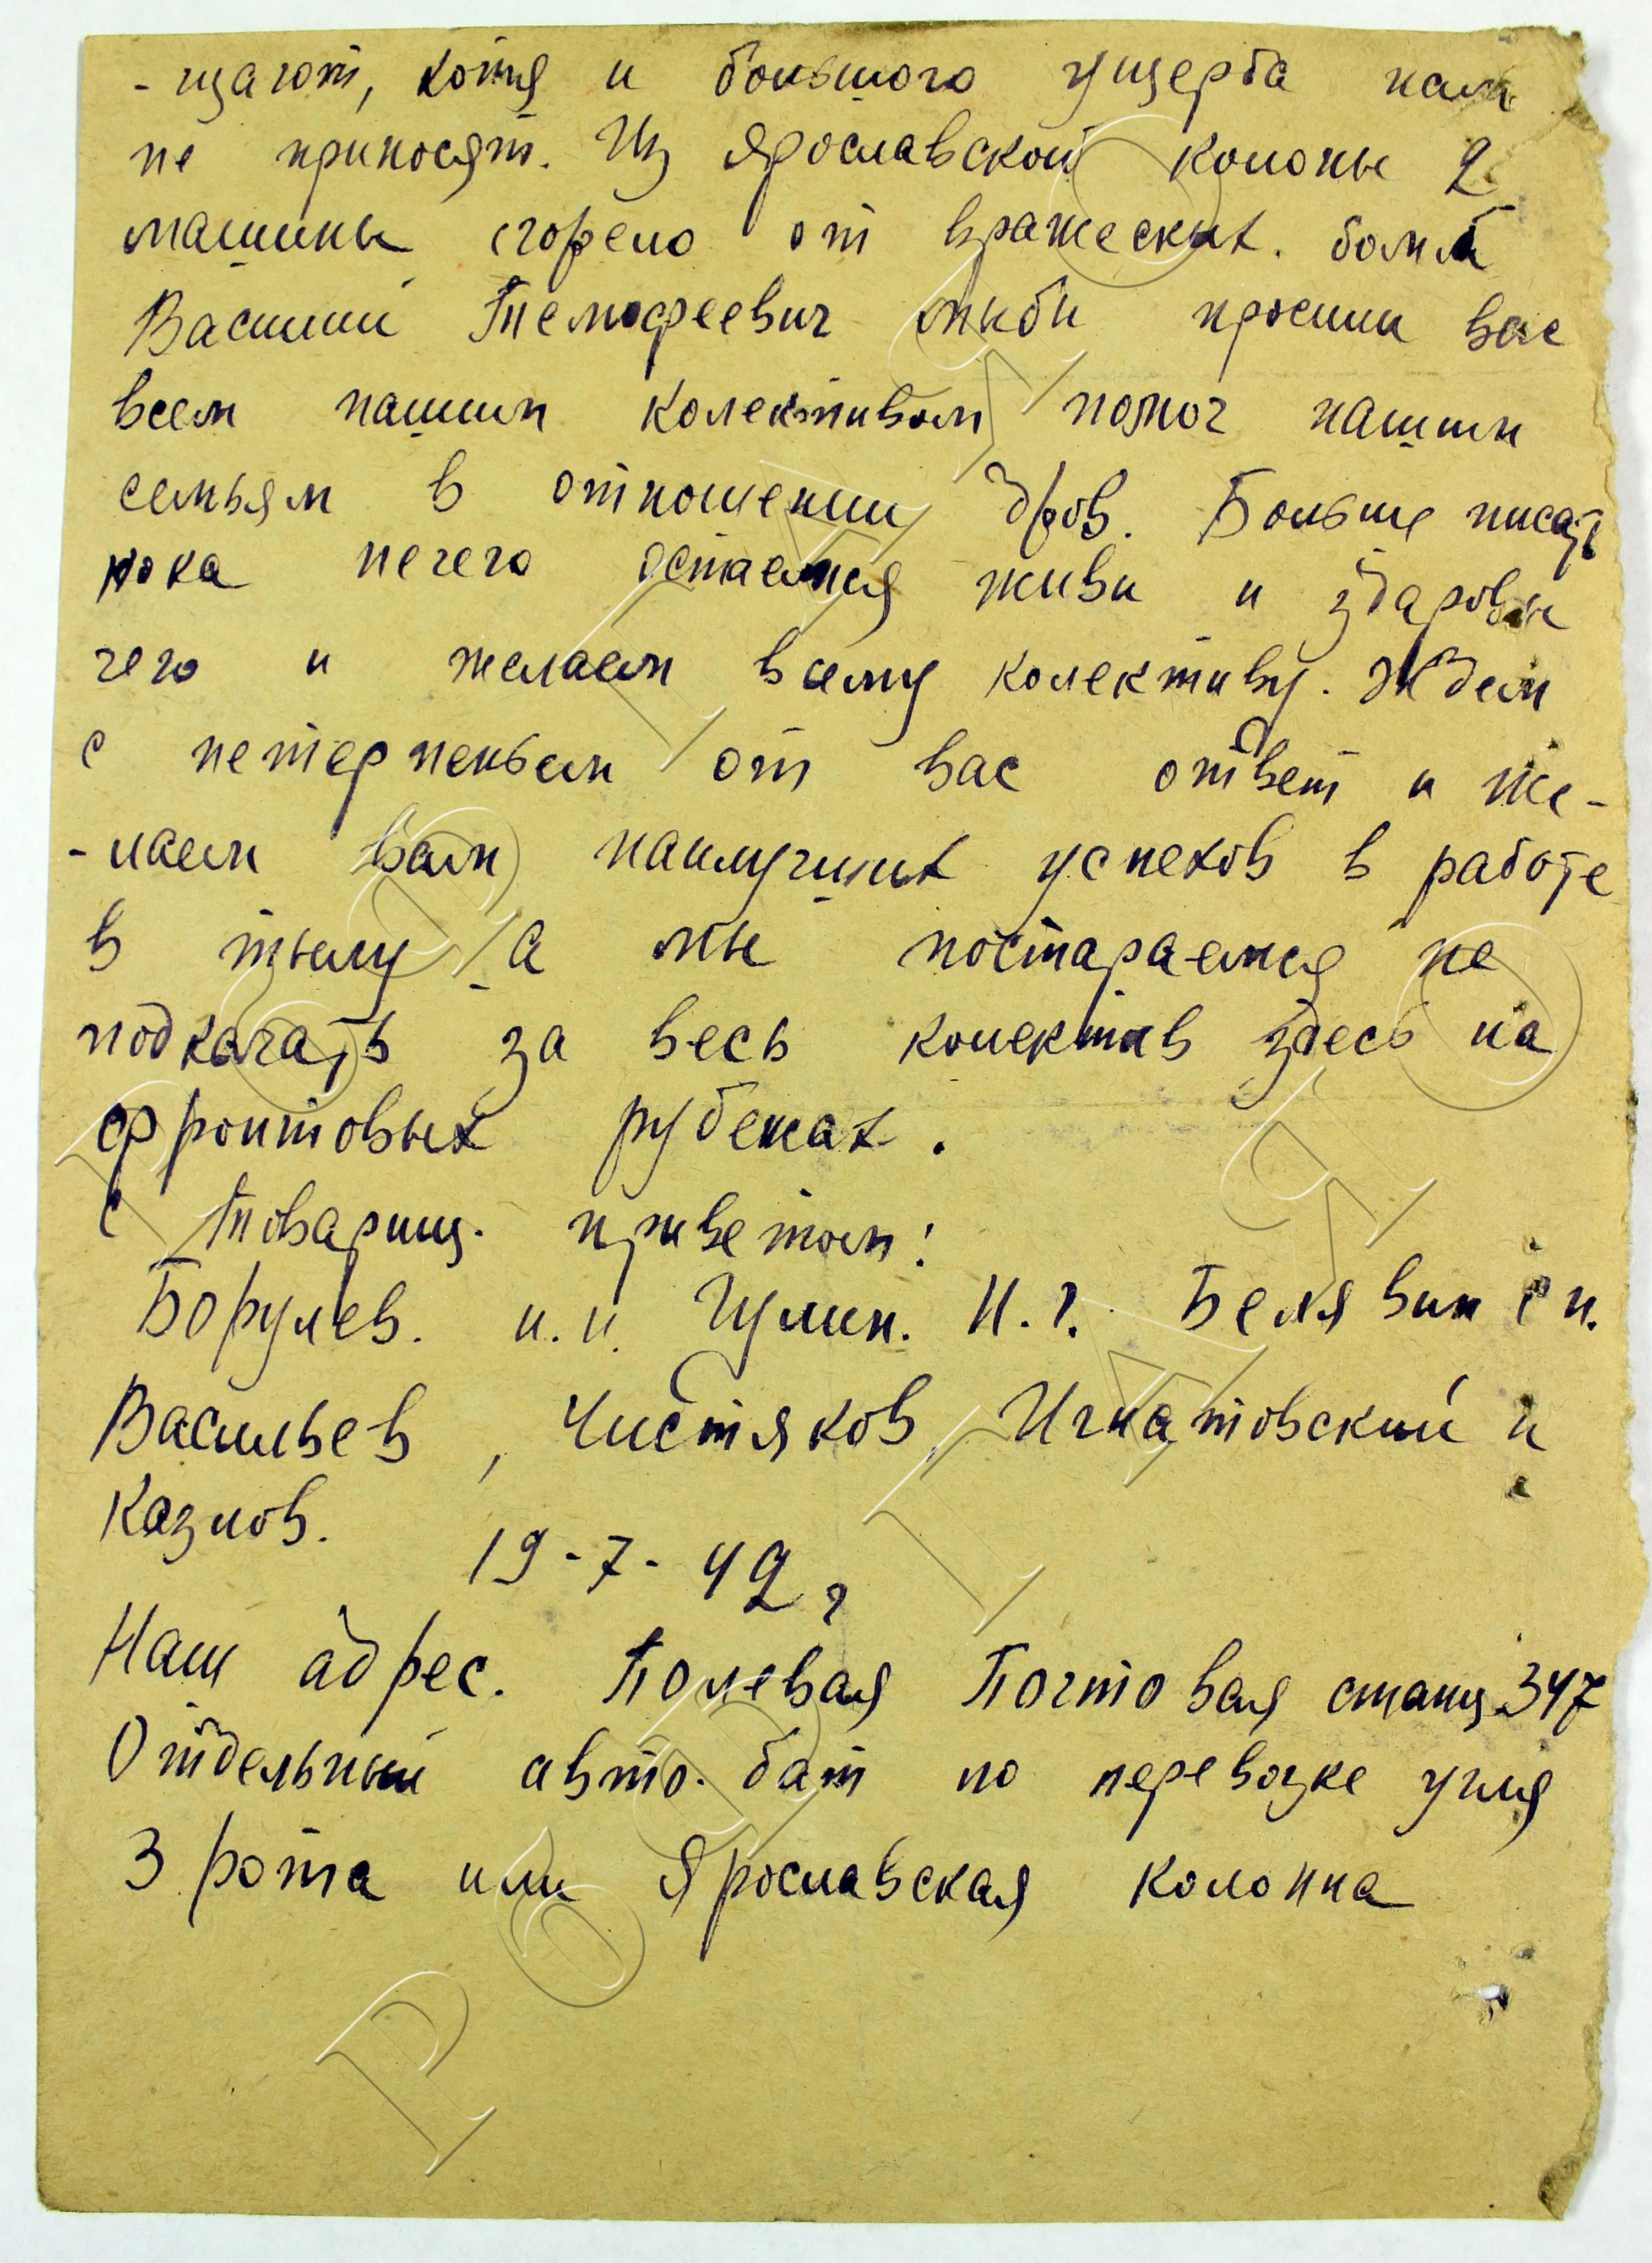 -щают, хотя и большого ущерба нам
не приносят. Из Ярославской колоны 2
машины сгорело от вражеских. бомб
Василий Темофеевич мы бы просили вас
всем нашим колективом помоч нашим
семьям в отношении дров. Больше писать
пока нечего остаемся живы и здаровы
чего и желаем всему колективу. Ждем
с нетерпеньем от вас ответ и же-
-лаем вам наилучших успехов в работе
в тылу а мы постараемся не
подкачать за весь колектив здесь на
фронтовых рубежах.
с Товарищ. приветом!
Борулев. и.и. И.г. Белявин
Васильев, Чистяков, Игнатовский и
Казнов.
19-7-42 г
Наш адрес. Полевая Почтовая станц 347
Отдельный авто. бат по перевозке угля
3 рота или Ярославская колонна